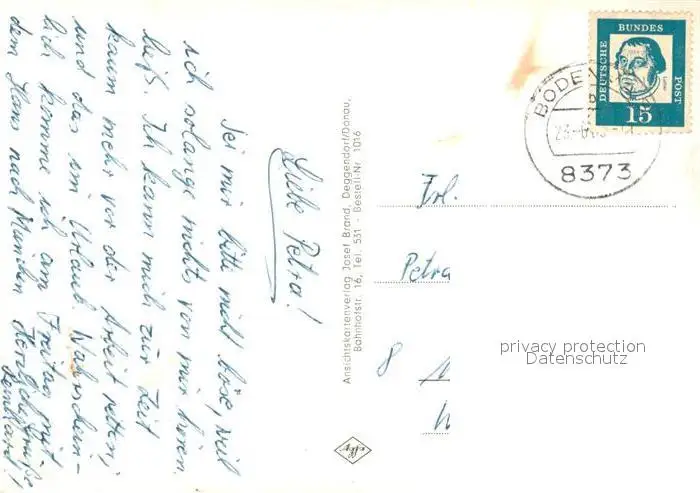 Liebe Petra!
Sei mir bitte nicht böse, weil
ich solange nichts von mir hören
ließ. Ich kann mich zur Zeit
kaum mehr vor der Arbeit retten,
und das im Urlaub. Wahrschein-
lich komme ich am Freitag mit
dem Hans nach München
Herzliche Grüße
Ansichtskartenverlag Josef Brand, Deggendorf/Donau,
Bahnhofstr. 16, Tel. 531 - Bestell-Nr 1016
Agfa
DEUTSCHE BUNDES POST
15
8373
Frl.
Petra
8
privacy protection
Datenschutz